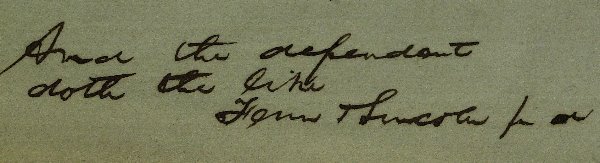 And the defendant
doth the like
& Lincoln